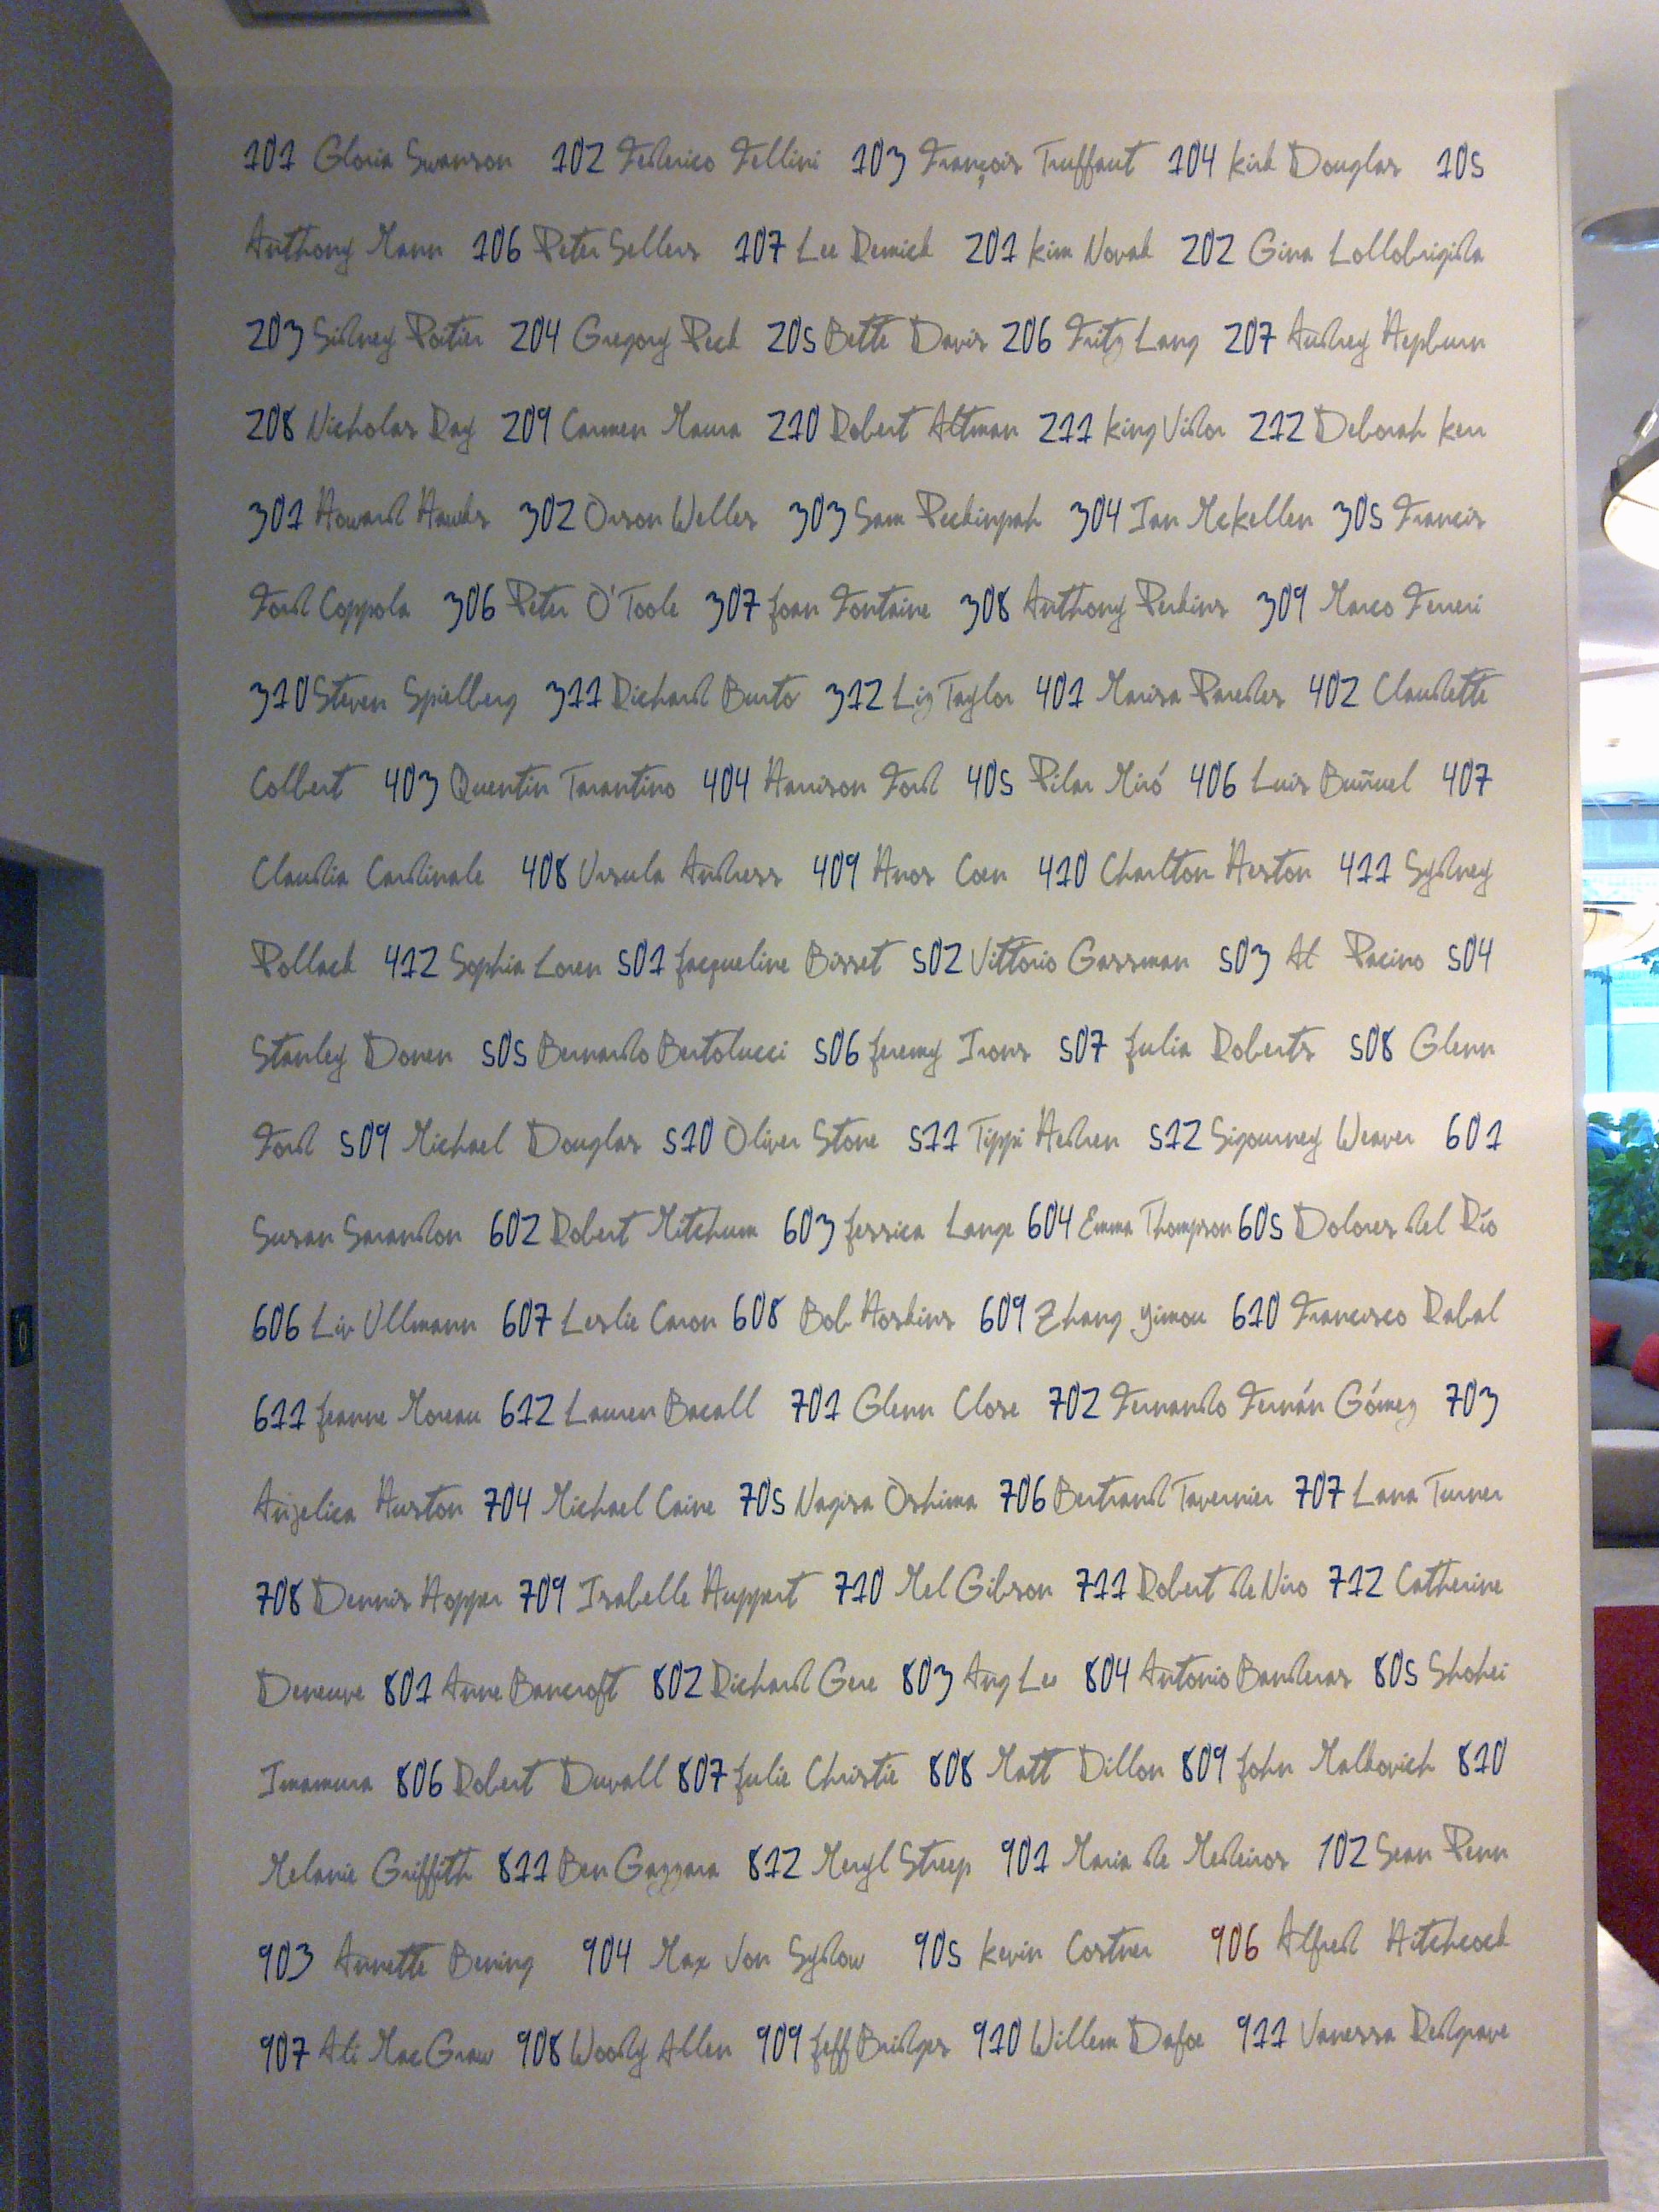 101 Gloria Swanson 102 Federico Fellini 103 François Truffaut 104 Kirk Douglas 105
Anthony Mann 106 Peter Sellers 107 Lee Remick 201 Kim Novak 202 Gina Lollobrigida
203 Sidney Poitier 204 Gregory Peck 205 Bette Davis 206 Fritz Lang 207 Audrey Hepburn
208 Nicholas Ray 209 Carmen Maura 210 Robert Altman 211 King Vidor 212 Deborah Kerr
301 Howard Hawks 302 Orson Welles 303 Sam Peckinpah 304 Ian McKellen 305 Francis
Ford Coppola 306 Peter O'Toole 307 Joan Fontaine 308 Anthony Perkins 309 Marco Ferreri
310 Steven Spielberg 311 Richard Burto 312 Liz Taylor 401 Marisa Paredes 402 Claudette
Colbert 403 Quentin Tarantino 404 Harrison Ford 405 Pilar Miró 406 Luis Buñuel 407
Claudia Cardinale 408 Ursula Andress 409 Hnos Coen 410 Charlton Heston 411 Sydney
Pollack 412 Sophia Loren 501 Jacqueline Bisset 502 Vittorio Gassman 503 Al Pacino 504
Stanley Donen 505 Bernardo Bertolucci 506 Jeremy Irons 507 Julia Roberts 508 Glenn
Ford 509 Michael Douglas 510 Oliver Stone 511 Tippi Hedren 512 Sigourney Weaver 601
Susan Sarandon 602 Robert Mitchum 603 Jessica Lange 604 Emma Thompson 605 Dolores del Río
606 Liv Ullmann 607 Leslie Caron 608 Bob Hoskins 609 Zhang Yimou 610 Francisco Rabal
611 Jeanne Moreau 612 Lauren Bacall 701 Glenn Close 702 Fernando Fernán Gómez 703
Anjelica Huston 704 Michael Caine 705 Nagisa Oshima 706 Bertrand Tavernier 707 Lana Turner
708 Dennis Hopper 709 Isabelle Huppert 710 Mel Gibson 711 Robert de Niro 712 Catherine
Deneuve 801 Anne Bancroft 802 Richard Gere 803 Ang Lee 804 Antonio Banderas 805 Shohei
Imamura 806 Robert Duvall 807 Julie Christie 808 Matt Dillon 809 John Malkovich 810
Melanie Griffith 811 Ben Gazzara 812 Meryl Streep 901 Maria de Medeiros 102 Sean Penn
903 Annette Bening 904 Max Von Sydow 905 Kevin Costner 906 Alfred Hitchcock
907 Ali MacGraw 908 Woody Allen 909 Jeff Bridges 910 Willem Dafoe 911 Vanessa Redgrave